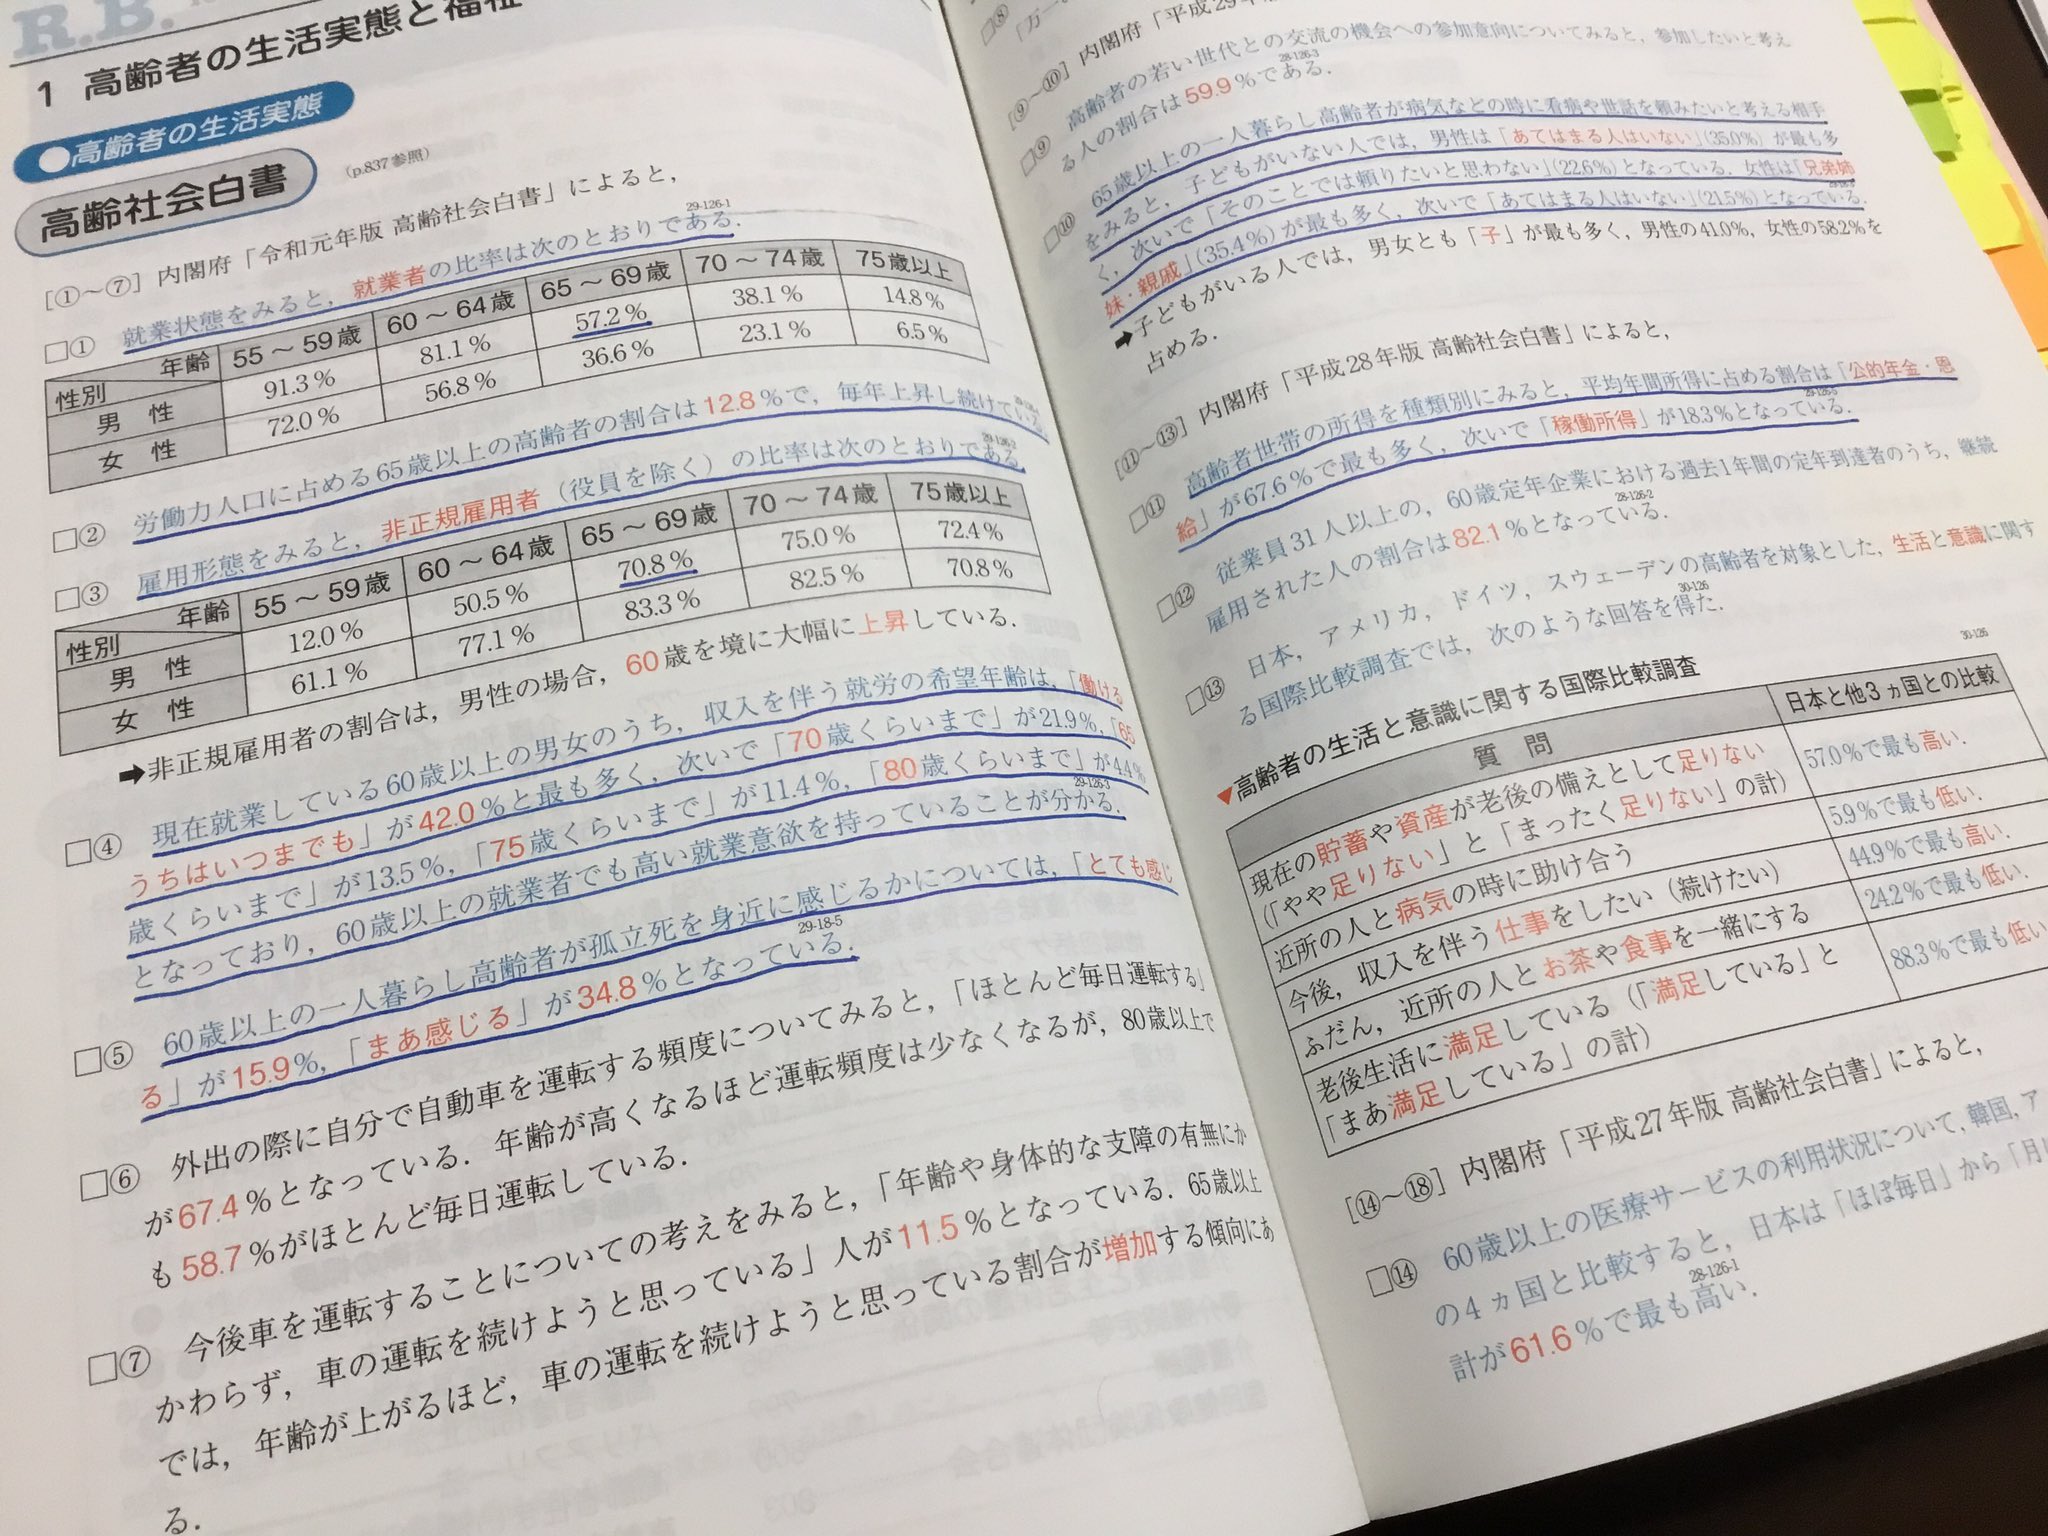 R.B.
1 高齢者の生活実態と福祉
●高齢者の生活実態
高齢社会白書 (p.837参照)
[①～⑦] 内閣府「令和元年版 高齢社会白書」によると,
□① 就業状態をみると, 就業者の比率は次のとおりである.
29-126-1
年齢 55～59歳 60～64歳 65～69歳 70～74歳 75歳以上
性別
男 性 91.3% 81.1% 57.2% 38.1% 14.8%
女 性 72.0% 56.8% 36.6% 23.1% 6.5%
□② 労働力人口に占める65歳以上の高齢者の割合は12.8%で, 毎年上昇し続けている.
□③ 雇用形態をみると, 非正規雇用者（役員を除く）の比率は次のとおりである.
29-126-2
年齢 55～59歳 60～64歳 65～69歳 70～74歳 75歳以上
性別
男 性 12.0% 50.5% 70.8% 75.0% 72.4%
女 性 61.1% 77.1% 83.3% 82.5% 70.8%
➡非正規雇用者の割合は, 男性の場合, 60歳を境に大幅に上昇している.
□④ 現在就業している60歳以上の男女のうち, 収入を伴う就労の希望年齢は,「働ける
うちはいつまでも」が42.0%と最も多く, 次いで「70歳くらいまで」が21.9%,「65
歳くらいまで」が13.5%,「75歳くらいまで」が11.4%,「80歳くらいまで」が4.4%
となっており, 60歳以上の就業者でも高い就業意欲を持っていることが分かる.
29-126-3
□⑤ 60歳以上の一人暮らし高齢者が孤立死を身近に感じるかについては,「とても感じ
る」が15.9%,「まあ感じる」が34.8%となっている.
29-18-5
□⑥ 外出の際に自分で自動車を運転する頻度についてみると,「ほとんど毎日運転する」
が67.4%となっている. 年齢が高くなるほど運転頻度は少なくなるが, 80歳以上で
も58.7%がほとんど毎日運転している.
□⑦ 今後車を運転することについての考えをみると,「年齢や身体的な支障の有無にか
かわらず, 車の運転を続けようと思っている」人が11.5%となっている. 65歳以上
では, 年齢が上がるほど, 車の運転を続けようと思っている割合が増加する傾向にあ
る.
□⑧ 「万一
[⑨～⑩] 内閣府「平成29年
□⑨ 高齢者の若い世代との交流の機会への参加意向についてみると, 参加したいと考え
る人の割合は59.9%である.
28-126-3
□⑩ 65歳以上の一人暮らし高齢者が病気などの時に看病や世話を頼みたいと考える相手
をみると, 子どもがいない人では, 男性は「あてはまる人はいない」(35.0%) が最も多
く, 次いで「そのことでは頼りたいと思わない」(22.6%) となっている. 女性は「兄弟姉
妹・親戚」(35.4%) が最も多く, 次いで「あてはまる人はいない」(21.5%) となっている.
➡子どもがいる人では, 男女とも「子」が最も多く, 男性の41.0%, 女性の58.2%を
占める.
[⑪～⑬] 内閣府「平成28年版 高齢社会白書」によると,
□⑪ 高齢者世帯の所得を種類別にみると, 平均年間所得に占める割合は「公的年金・恩
給」が67.6%で最も多く, 次いで「稼働所得」が18.3%となっている.
29-126-5
□⑫ 従業員31人以上の, 60歳定年企業における過去1年間の定年到達者のうち, 継続
雇用された人の割合は82.1%となっている.
28-126-2
□⑬ 日本, アメリカ, ドイツ, スウェーデンの高齢者を対象とした, 生活と意識に関す
る国際比較調査では, 次のような回答を得た.
30-126
▼高齢者の生活と意識に関する国際比較調査
30-126
質 問 日本と他3ヵ国との比較
現在の貯蓄や資産が老後の備えとして足りない
（「やや足りない」と「まったく足りない」の計） 57.0%で最も高い.
近所の人と病気の時に助け合う 5.9%で最も低い.
今後, 収入を伴う仕事をしたい（続けたい） 44.9%で最も高い.
ふだん, 近所の人とお茶や食事を一緒にする 24.2%で最も低い.
老後生活に満足している（「満足している」と
「まあ満足している」の計） 88.3%で最も低い
[⑭～⑱] 内閣府「平成27年版 高齢社会白書」によると,
□⑭ 60歳以上の医療サービスの利用状況について, 韓国, ア
の4ヵ国と比較すると, 日本は「ほぼ毎日」から「月に
計が61.6%で最も高い.
28-126-1